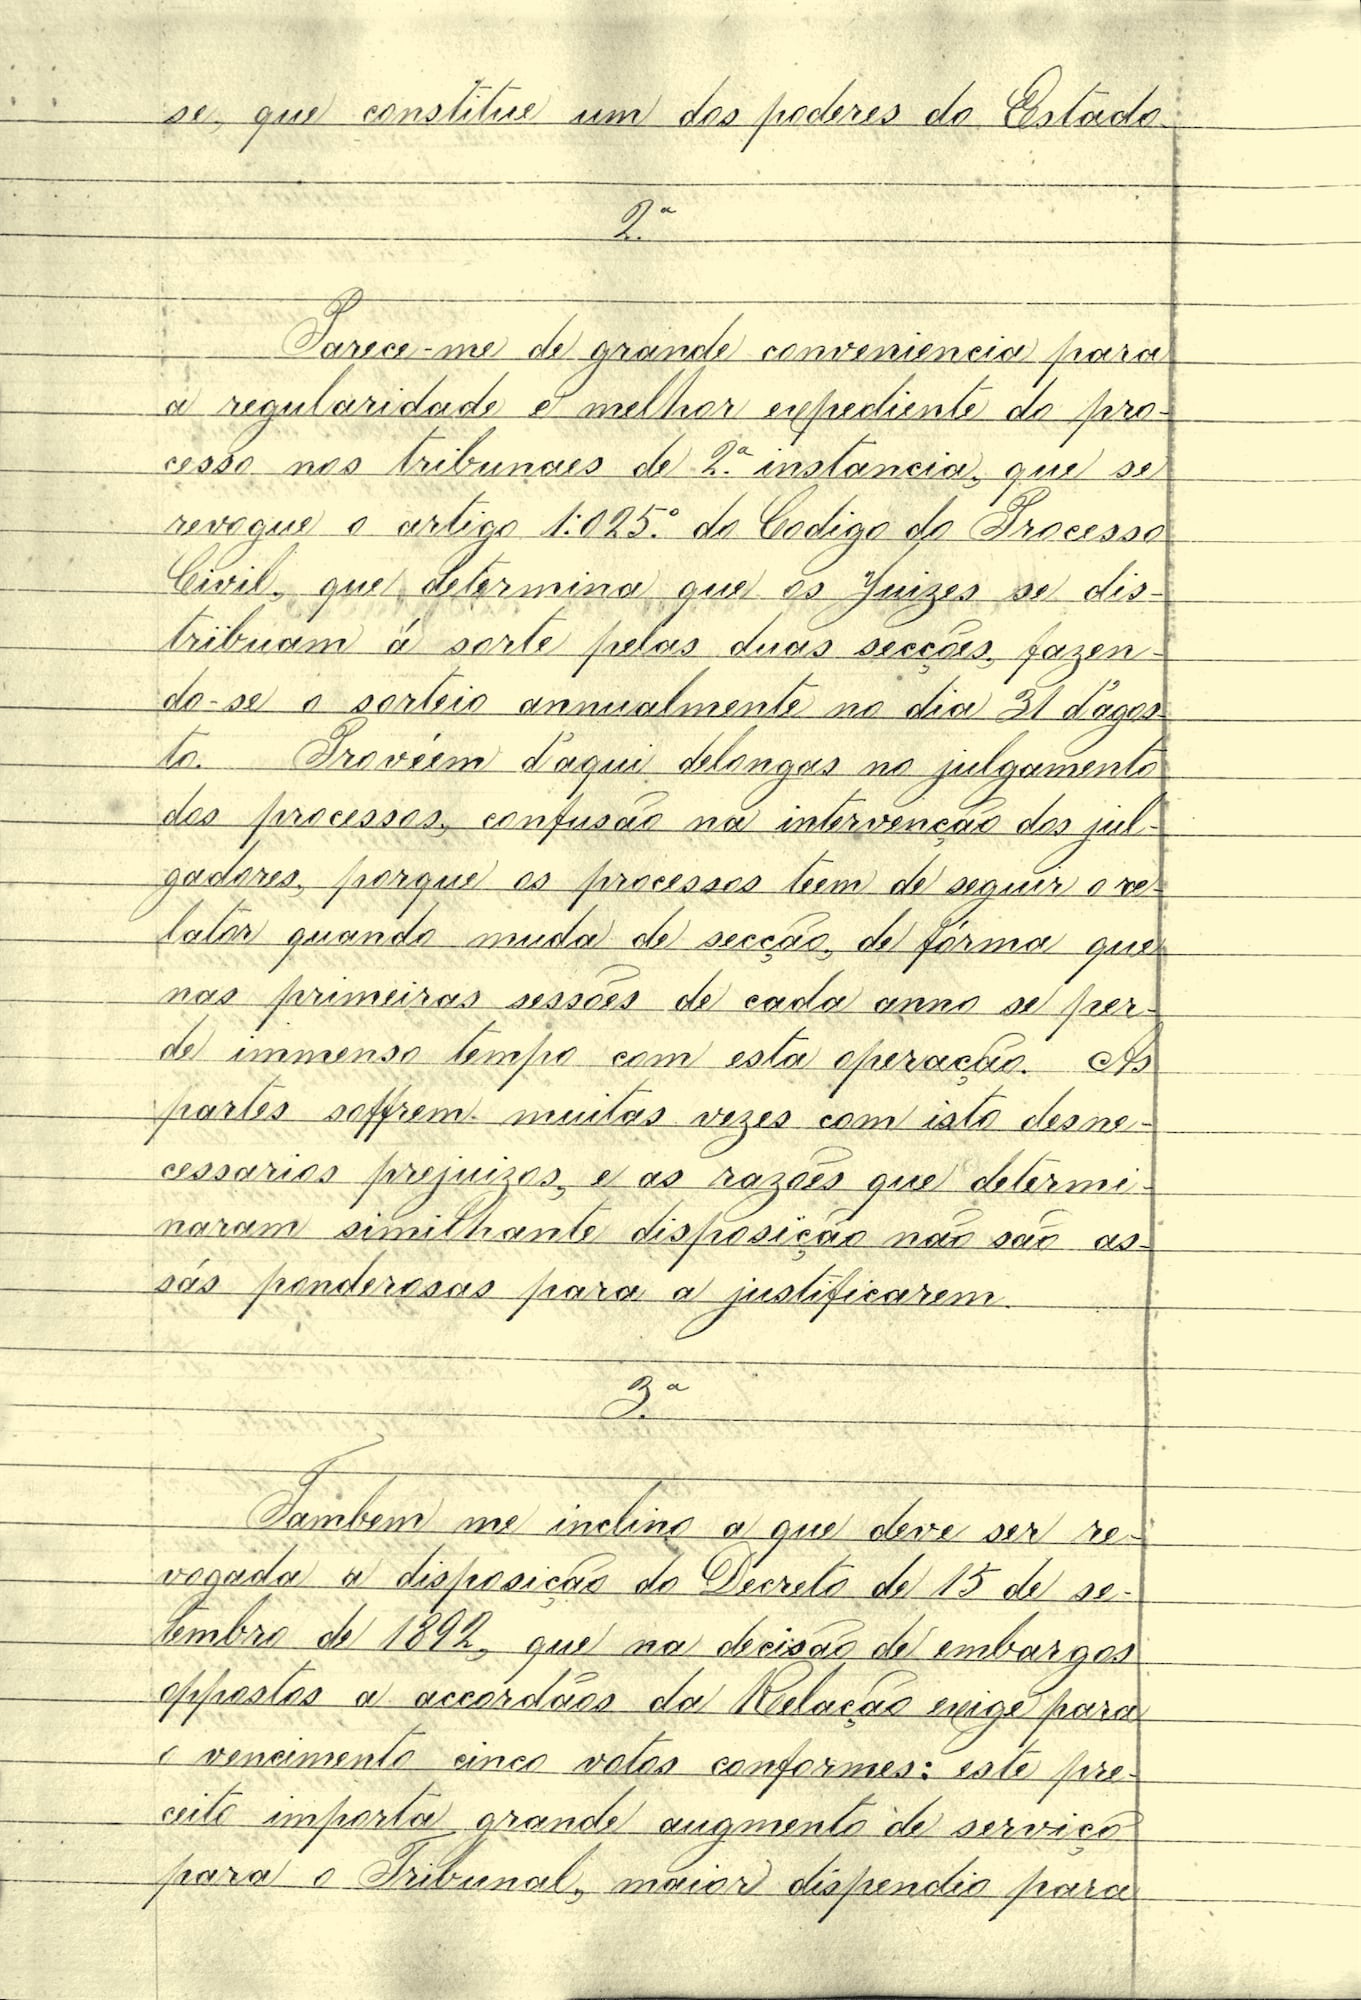 se, que constitue um dos poderes do Estado
2.ª
Parece-me de grande conveniencia para
a regularidade e melhor expediente do pro-
cesso nos tribunaes de 2.ª instancia, que se
revogue o artigo 1:025.º do Codigo do Processo
Civil, que determina que os Juizes se dis-
tribuam á sorte pelas duas secções, fazen-
do-se o sorteio annualmente no dia 31 d'agos-
to. Provêem d'aqui delongas no julgamento
dos processos, confusão na intervenção dos jul-
gadores, porque os processos teem de seguir o re-
lator quando muda de secção, de fórma que
nas primeiras sessões de cada anno se per-
de immenso tempo com esta operação. As
partes soffrem muitas vezes com isto desne-
cessarios prejuizos, e as razões que determi-
naram similhante disposição não são as-
sás ponderosas para a justificarem.
3.ª
Tambem me inclino a que deve ser re-
vogada a disposição do Decreto de 15 de se-
tembro de 1892, que na decisão de embargos
oppostos a accordãos da Relação exige para
o vencimento cinco votos conformes: este pre-
ceito importa grande augmento de serviço
para o Tribunal, maior dispendio para